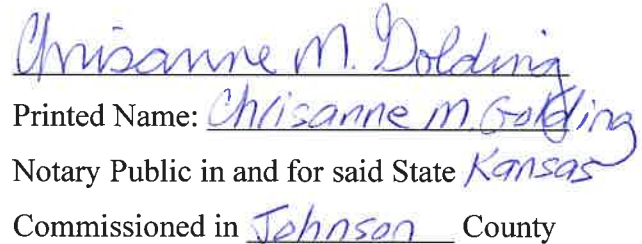 Chrisanne M. Golding
Printed Name: Chrisanne M. Golding
Notary Public in and for said State Kansas
Commissioned in Johnson County